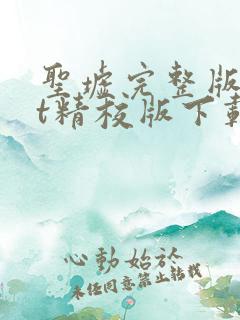 聖墟完整版
t精校版下載
心動始於
未任同意禁止转载